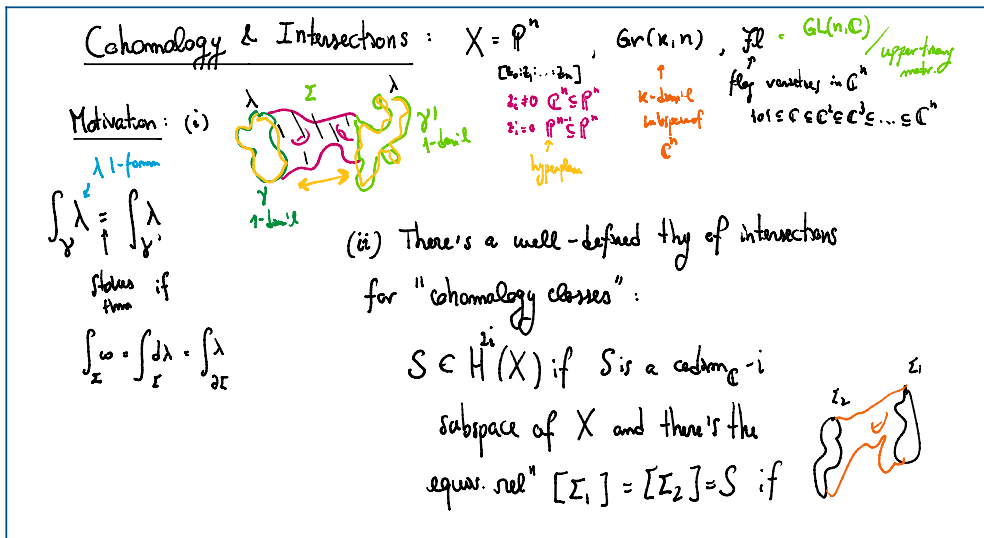 Cohomology & Intersections : X = ℙⁿ , Gr(k,n) , Fl = GL(n,ℂ) / upper triang matr.
[z₀:z₁:...:zₙ]
zᵢ≠0 ℂⁿ ⊆ ℙⁿ
zᵢ=0 ℙⁿ⁻¹ ⊆ ℙⁿ
hyperplane
k-dim'l
subspace of
ℂⁿ
flag varieties in ℂⁿ
{0} ⊆ ℂ ⊆ ℂ² ⊆ ℂ³ ⊆ ... ⊆ ℂⁿ
Motivation : (i)
λ Σ λ
γ
1-dim'l
γ'
1-dim'l
λ 1-form
∫_γ λ = ∫_γ' λ
Stokes if
thm
∫_Σ ω = ∫_Σ dλ = ∫_∂Σ λ
(ii) There's a well-defined thy of intersections
for "cohomology classes" :
S ∈ H²ⁱ(X) if S is a codim_ℂ-i
subspace of X and there's the
equiv. relⁿ [Σ₁] = [Σ₂] = S if
Σ₂ Σ₁